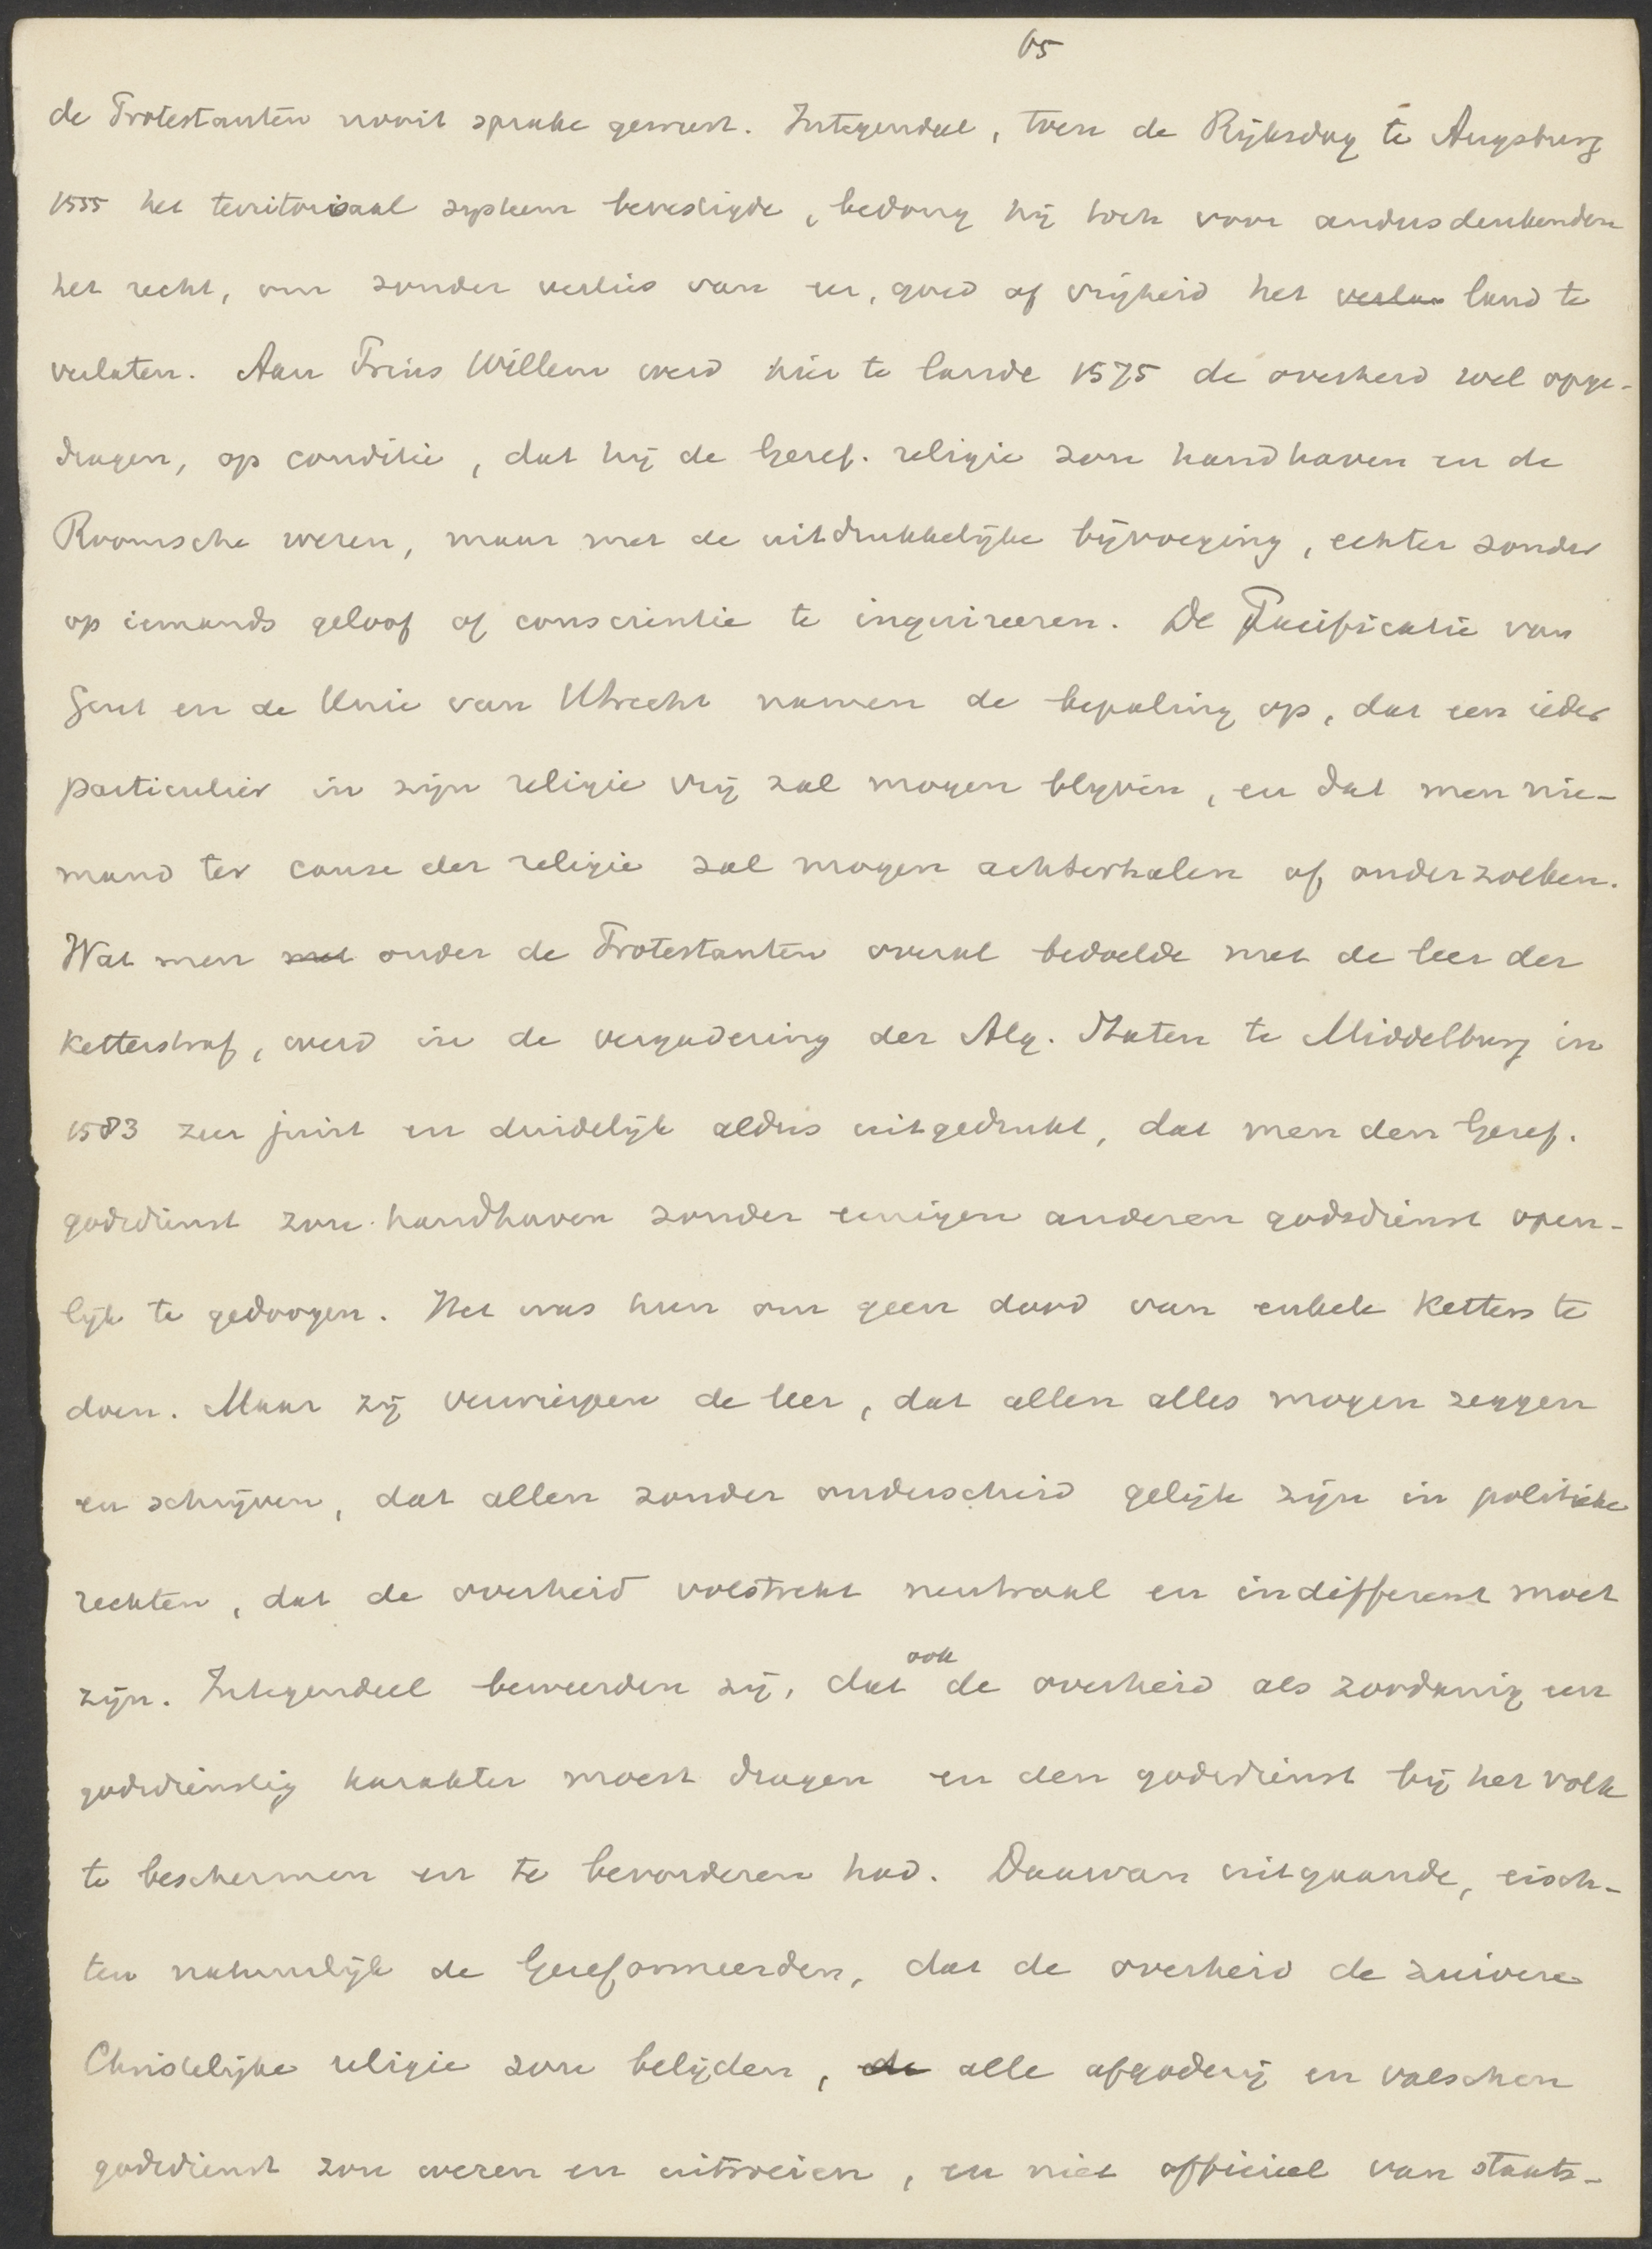 65
de Protestanten nooit sprake geweest. Integendeel, toen de Rijksdag te Augsburg
1555 het territoriaal systeem bevestigde, bedong hij toch voor andersdenkenden
het recht, om zonder verlies van eer, goed of vrijheid het verla land te
verlaten. Aan Prins Willem werd hier te lande 1575 de overheid wel opge-
dragen, op conditie, dat hij de Geref. religie zou handhaven en de
Roomsche weren, maar met de uitdrukkelijke bijvoeging, echter zonder
op iemands geloof of conscientie te inquireeren. De Pacificatie van
Gent en de Unie van Utrecht namen de bepaling op, dat een ieder
particulier in zijn religie vrij zal mogen blijven, en dat men nie-
mand ter cause der religie zal mogen achterhalen of onderzoeken.
Wat men met onder de Protestanten overal bedoelde met de leer der
ketterstraf, werd in de vergadering der Alg. Staten te Middelburg in
1583 zeer juist en duidelijk aldus uitgedrukt, dat men den Geref.
godsdienst zou handhaven zonder eenigen anderen godsdienst open-
lijk te gedoogen. Het was hun om geen dood van enkele ketters te
doen. Maar zij verwierpen de leer, dat allen alles mogen zeggen
en schrijven, dat allen zonder onderscheid gelijk zijn in politieke
rechten, dat de overheid volstrekt neutraal en indifferent moet
zijn. Integendeel beweerden zij, dat ook de overheid als zoodanig een
godsdienstig karakter moest dragen en den godsdienst bij het volk
te beschermen en te bevorderen had. Daarvan uitgaande, eisch-
ten natuurlijk de Gereformeerden, dat de overheid de zuivere
Christelijke religie zou belijden, de alle afgoderij en valschen
godsdienst zou weren en uitroeien, en niet officieel van staats-